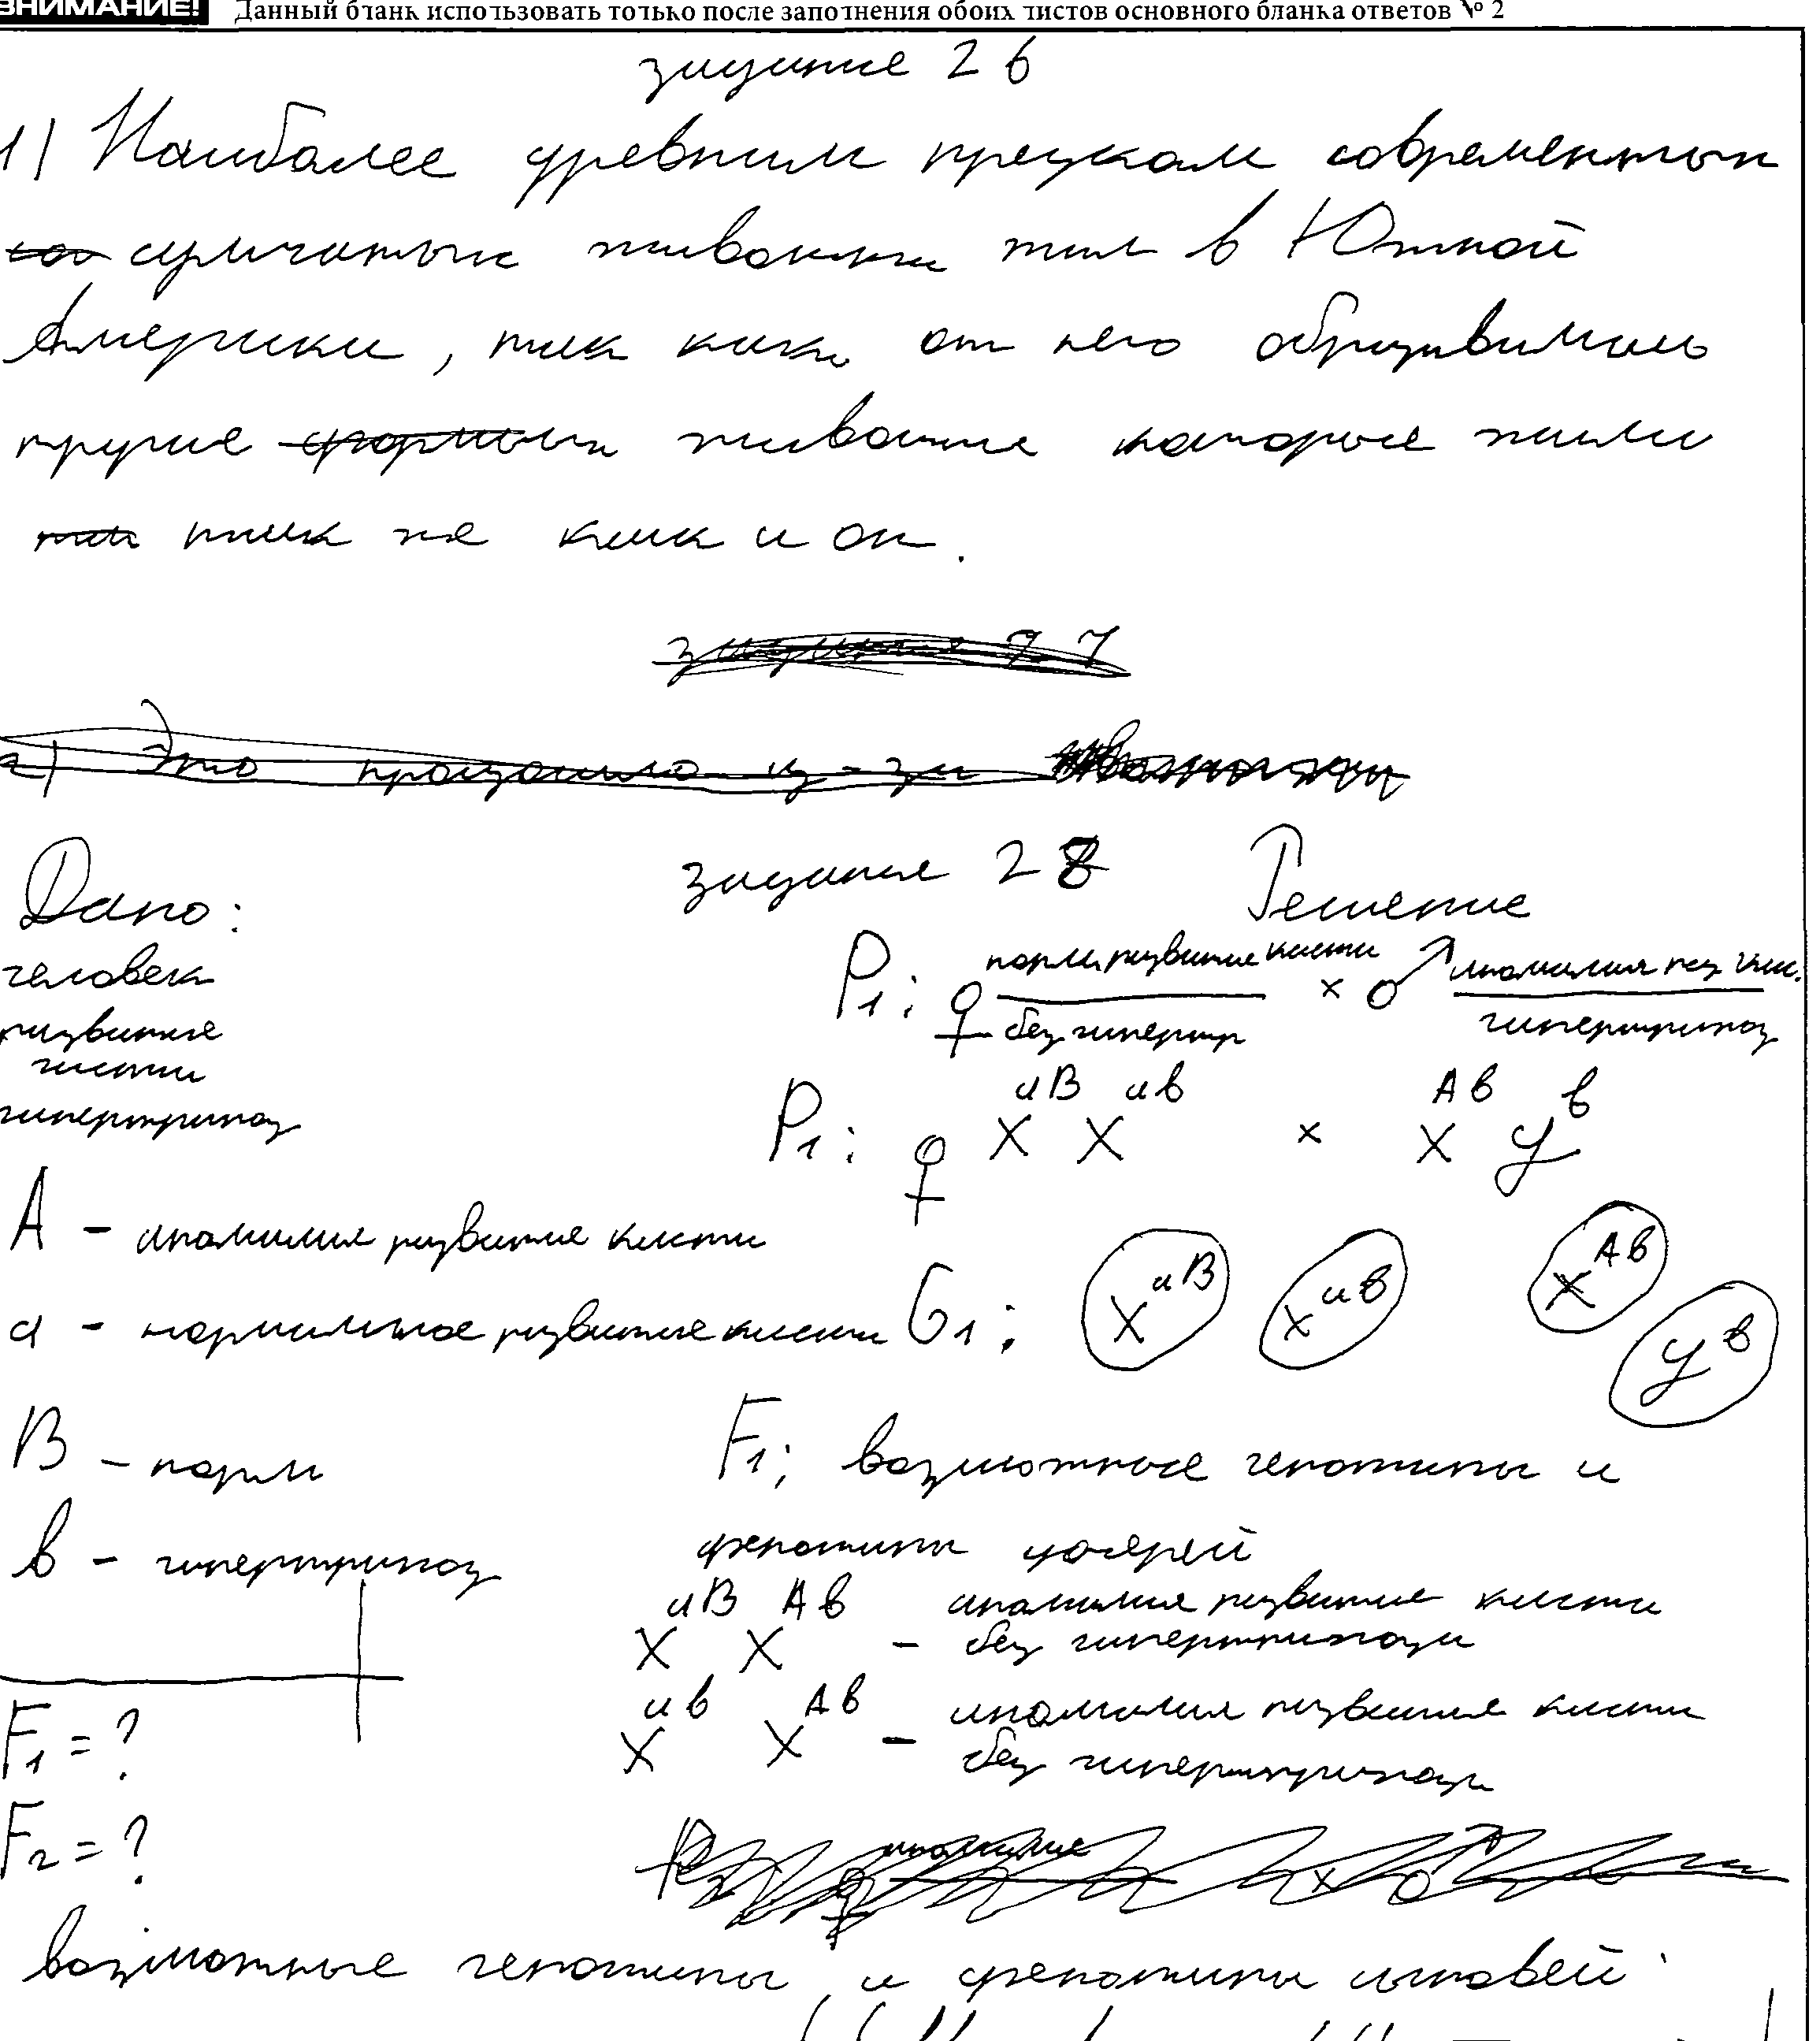 ВНИМАНИЕ! Данный бланк использовать только после заполнения обоих листов основного бланка ответов № 2
задание 26
1) Наиболее древним предком современных
сумчатых животных жил в Южной
Америки, так как от него образовались
другие животные которые жили
так же как и он.
задание 27
2) Это произошло из-за
задание 28
Дано:
человек
развитие
кисти
гипертрихоз
A - аномалия развитие кисти
a - нормальное развитие кисти
B - норм
b - гипертрихоз
F1 = ?
F2 = ?
Решение
P1: ♀ норм. развитие кисти × ♂ аномалия раз. кис.
без гипертр гипертрихоз
P1: ♀ X aB X ab × X Ab Y b
G1: X aB X ab X Ab Y b
F1: возможные генотипы и
фенотипы дочерей
X aB X Ab - аномалия развитие кисти
без гипертрихоза
X ab X Ab - аномалия развитие кисти
без гипертрихоза
возможные генотипы и фенотипы сыновей